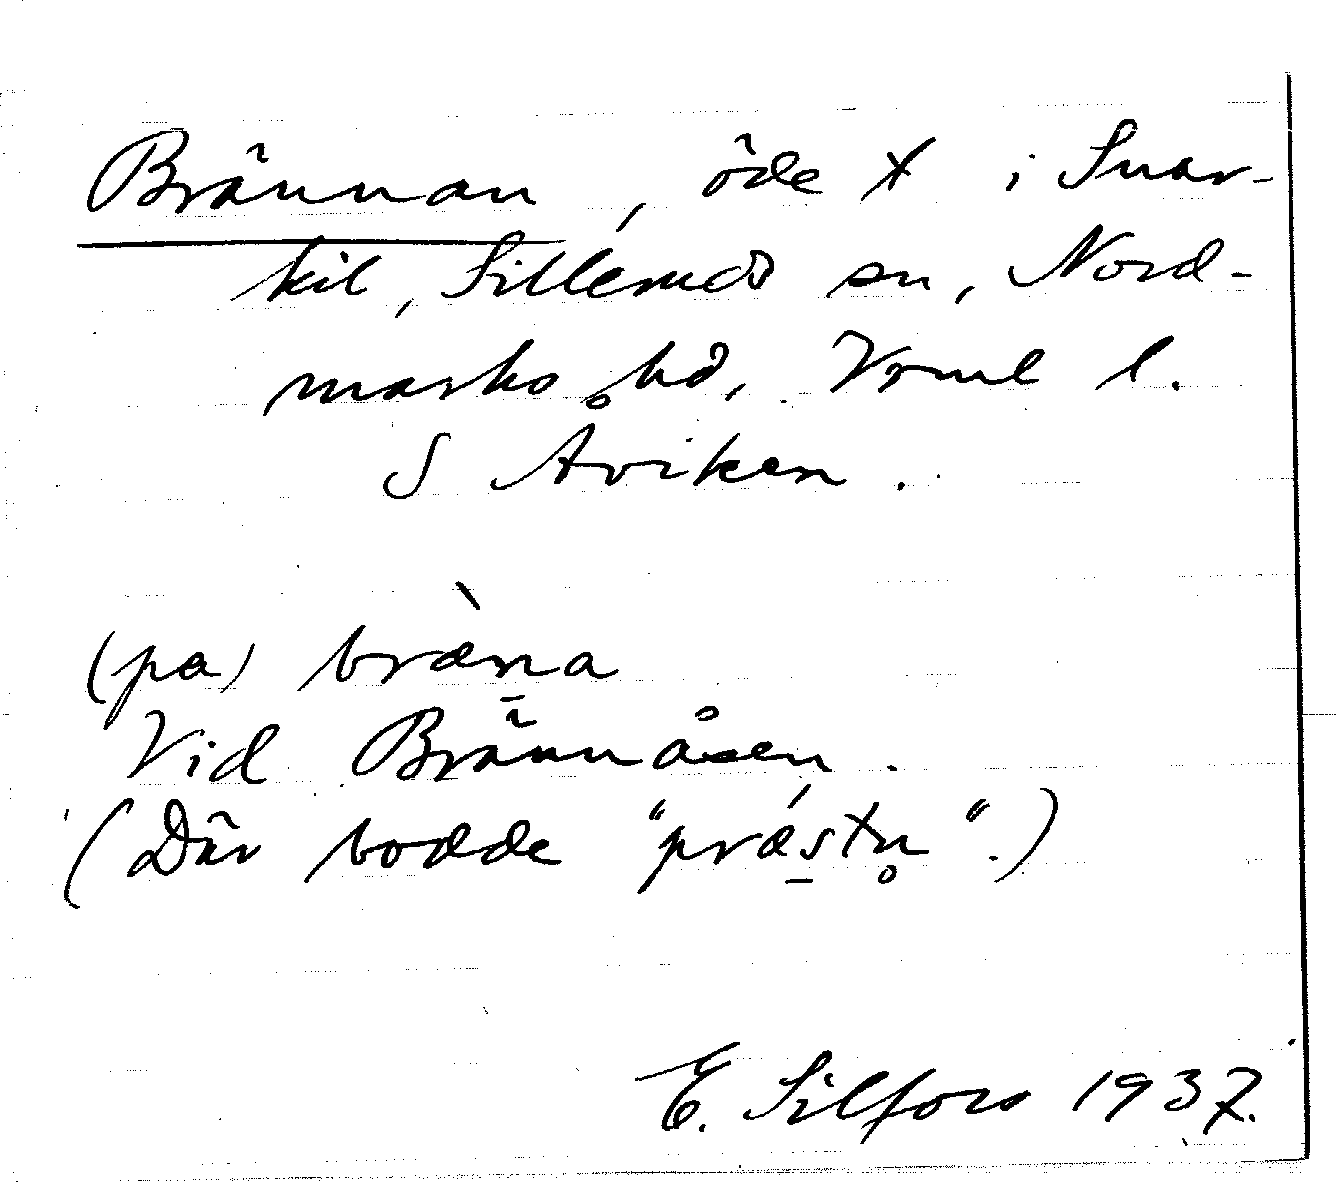 Brännan, öde x i Snar-
kil, Silleruds sn, Nord-
marks hd, Vrml l.
S Åviken.
(pa) bræ̀n̠a
Vid Brännåsen.
(Där bodde "prǽs̠tn̥".)
E. Silfors 1937.